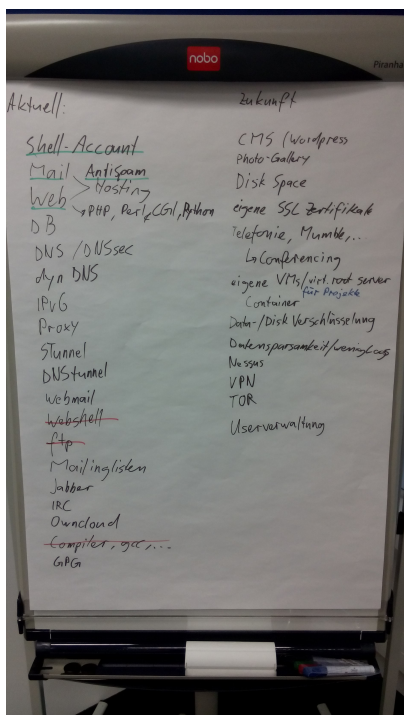 nobo
Piranha
Aktuell:
Shell-Account
Mail Antispam
Hosting
Web
PHP, Perl, CGI, Python
DB
DNS / DNSsec
dyn DNS
IPv6
Proxy
STunnel
DNStunnel
Webmail
Webshell
ftp
Mailinglisten
Jabber
IRC
Owncloud
Compiler, gcc, ...
GPG
Zukunft
CMS / Wordpress
Photo-Gallery
Disk Space
eigene SSL Zertifikate
Telefonie, Mumble, ..
Conferencing
eigene VMs/virt. root server
für Projekte
Container
Data-/Disk Verschlüsselung
Datensparsamkeit/wenig Logs
Nessus
VPN
TOR
Userverwaltung